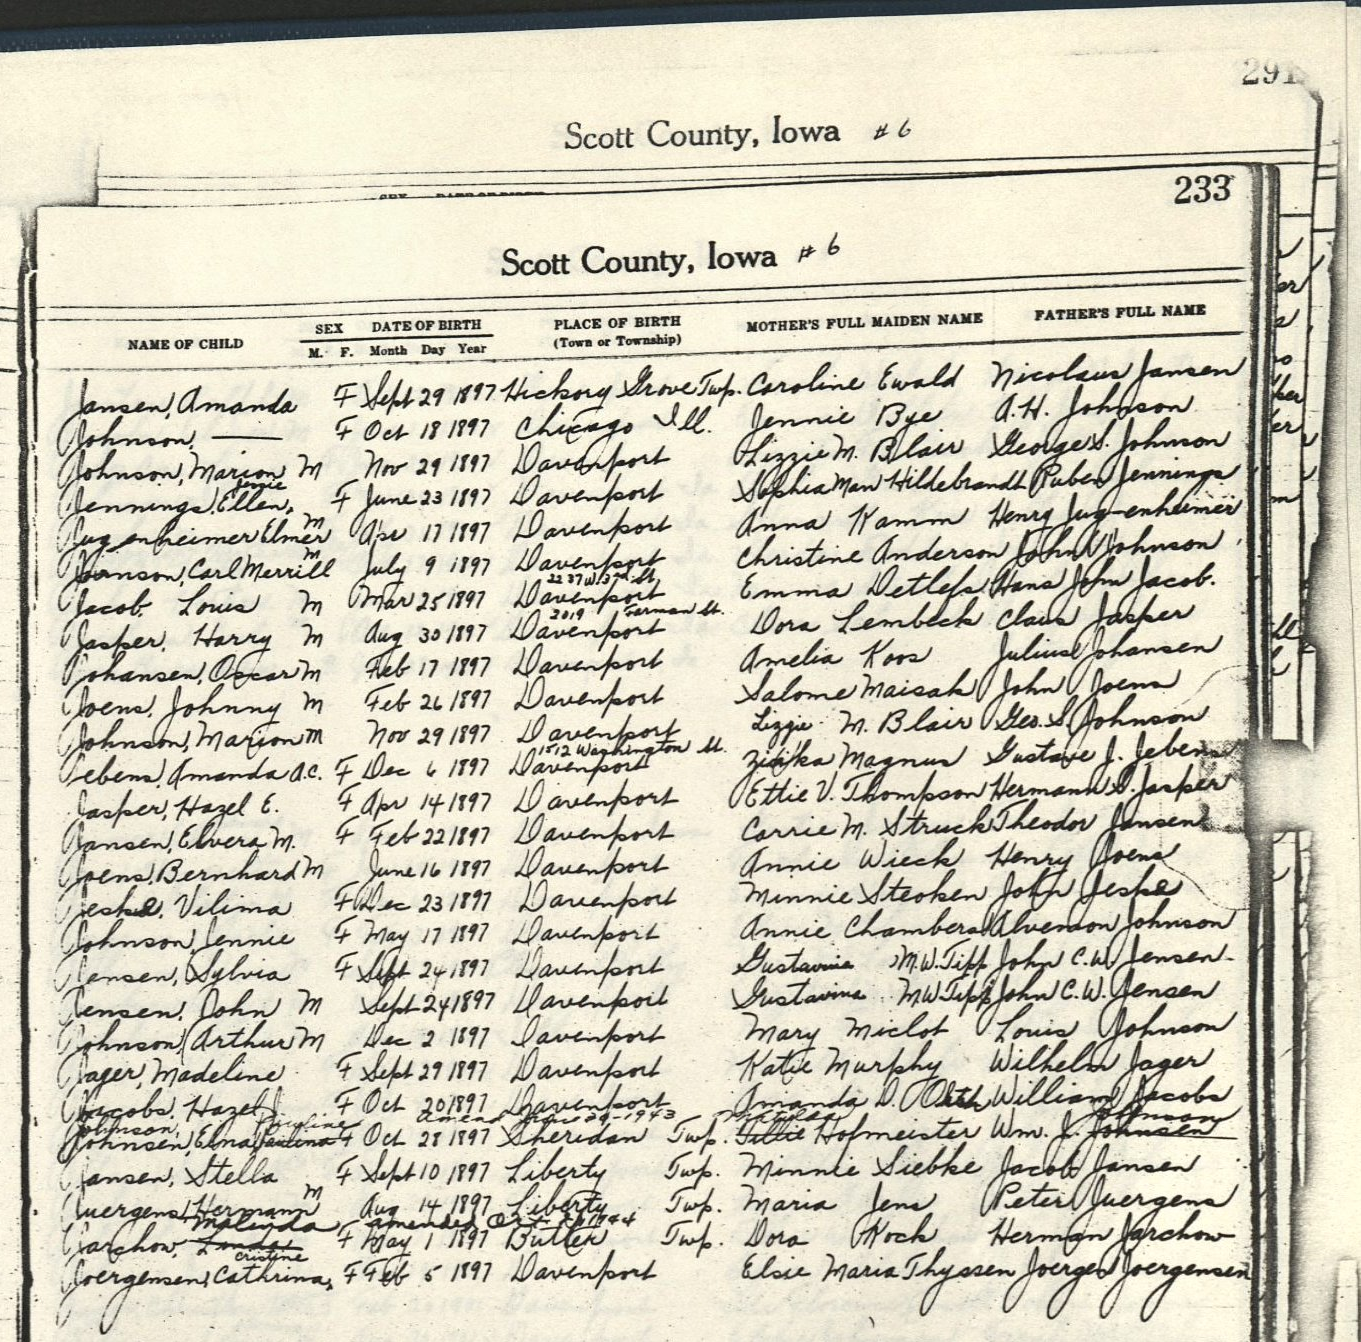 291
Scott County, Iowa #6
233
Scott County, Iowa #6
NAME OF CHILD SEX M. F. DATE OF BIRTH Month Day Year PLACE OF BIRTH (Town or Township) MOTHER'S FULL MAIDEN NAME FATHER'S FULL NAME
Jansen, Amanda F Sept 29 1897 Hickory Grove Twp. Caroline Ewald Nicolaus Jansen
Johnson, — F Oct 18 1897 Chicago Ill. Jennie Bye A.H. Johnson
Johnson, Marion M Nov 29 1897 Davenport Lizzie M. Blair George S. Johnson
Jennings, Ellen, F June 23 1897 Davenport Sophia Man Hildebrandt Ruben Jennings
Jugenheimer Elmer M Apr 17 1897 Davenport Anna Kamm Henry Jugenheimer
Johnson, Carl Merrill M July 9 1897 Davenport Christine Anderson John Johnson
2237 W. 3rd St.
Jacob, Louis M Mar 25 1897 Davenport Emma Detlefs Hans John Jacob.
2019 Farnam St.
Jasper, Harry M Aug 30 1897 Davenport Dora Lembeck Claus Jasper
Johansen, Oscar M Feb 17 1897 Davenport Amelia Koos Julius Johansen
Joens, Johnny M Feb 26 1897 Davenport Salome Maisak John Joens
Johnson, Marion M Nov 29 1897 Davenport Lizzie M. Blair Geo. S. Johnson
1512 Washington St.
Jebens, Amanda A.C. F Dec 6 1897 Davenport Magnus Gustave J. Jebens
Jasper, Hazel E. F Apr 14 1897 Davenport Ettie V. Thompson Hermann S. Jasper
Jansen, Elvera M. F Feb 22 1897 Davenport Carrie M. Struck Theodor Jansen
Joens, Bernhard M June 16 1897 Davenport Annie Wieck Henry Joens
Jeske, Vilima F Dec 23 1897 Davenport Minnie Steoken John Jeske
Johnson, Jennie F May 17 1897 Davenport Annie Chambers Alvendon Johnson
Jensen, Sylvia F Sept 24 1897 Davenport Gustavine M.W. Tipp John C.W. Jensen
Jensen, John M Sept 24 1897 Davenport Gustavina M.W. Tipp John C.W. Jensen
Johnson, Arthur M Dec 2 1897 Davenport Mary Miclot Louis Johnson
Jager, Madeline F Sept 29 1897 Davenport Katie Murphy Wilhelm Jager
Jacobs, Hazel J. F Oct 20 1897 Davenport Amanda D. William Jacobs
Johnson, Pauline Amend 29-1943 Matilda Johnson
Johnsen, Elna F Oct 28 1897 Sheridan Twp. Tillie Hofmeister Wm. J. Johnsen
Jansen, Stella F Sept 10 1897 Liberty Twp. Minnie Siebke Jacob Jansen
Juergens, Hermann M Aug 14 1897 Liberty Twp. Maria Jens Peter Juergens
Malinda amended Oct 1944
Jarchow, Linda F May 1 1897 Butler Twp. Dora Kock Herman Jarchow
Cristine
Joergensen, Cathrina, F Feb 5 1897 Davenport Elsie Maria Thyssen Joergen Joergensen